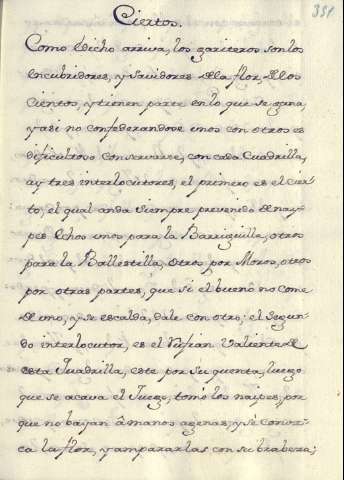 351
Ciertos.
Como dicho arriva, los gariteros son los
encubridores, y Savidores de la flor, de los
Ciertos, y tienen parte en lo que se gana,
y asi no confederandose unos con otros es
dificultoso conservarse, con cada Cuadrilla,
ay tres interlocutores, el primero es el Cier-
to, el qual anda siempre prevenido de nay-
pes dhos unos para la Barriguilla, otros
para la Ballestilla, otros por Moros, otros
por otras partes, que si el bueno no come
de uno, y se escalda, dale con otro; el Segun-
do interlocutor, es el Rufian Valiente de
esta Quadrilla, este por su quenta, luego
que se acava el Juego, tomo los naipes, por
que no bajan â manos agenas, y se conoz-
ca la flor, y ampararlas con su brabeza;